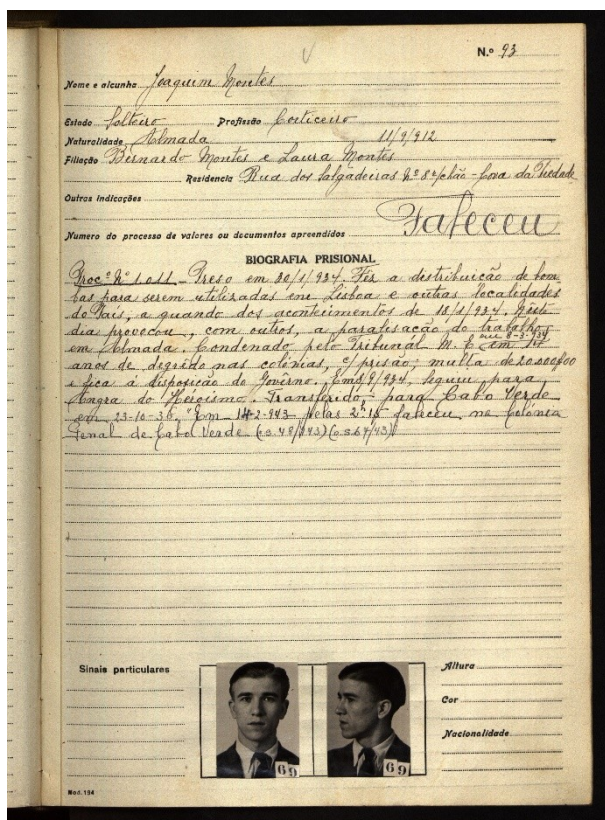 N.º 93
Nome e alcunha Joaquim Montes
Estado Solteiro Profissão Corticeiro
Naturalidade Almada 11/9/912
Filiação Bernardo Montes e Laura Montes
Residencia Rua dos Salgadeiras Nº 8 r/chão - Cova da Piedade
Outras indicações
Faleceu
Numero do processo de valores ou documentos apreendidos
BIOGRAFIA PRISIONAL
Proc.º Nº 1.011 - Preso em 30/1/934. Fez a distribuição de bom
bas para serem utilizadas em Lisboa e outras localidades
do País, a quando dos acontecimentos de 18/1/934. Neste
dia provocou, com outros, a paralisação do trabalho,
em Almada. Condenado pelo Tribunal M. E. em 8-3-934
anos de degrêdo nas colónias, c/ prisão; multa de 20.000$00
e fica à disposição do Govêrno. Em 8/9/934, seguiu para
Angra do Heroismo. Transferido, para Cabo Verde
em 23-10-36. "Em 14-2-943 pelas 2h 15 faleceu na Colonia
Penal de Cabo Verde (o.s. 48/943) (o.s. 64/43)
Sinais particulares
Altura
Cor
Nacionalidade
69
69
Mod. 194